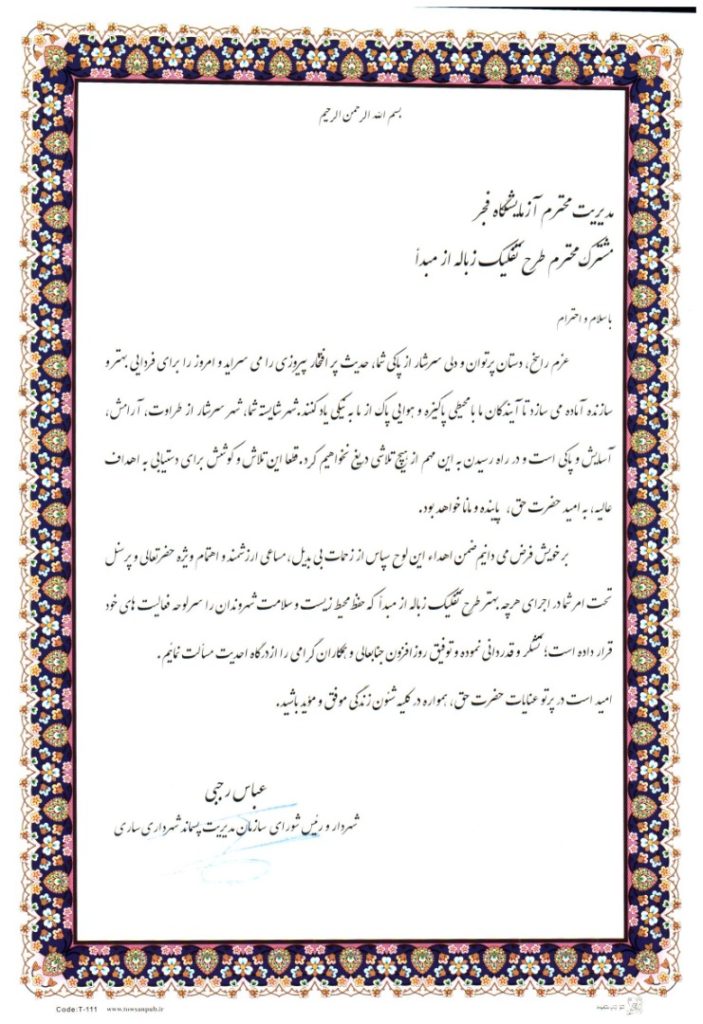 بسم الله الرحمن الرحیم
مدیریت محترم آزمایشگاه فجر
مشترک محترم طرح تفکیک زباله از مبدأ
با سلام و احترام
عزم راسخ، دستان پرتوان و دلی سرشار از پاکی شما، حدیث پر افتخار پیروزی را می سراید و امروز را برای فردایی بهتر و
سازنده آماده می سازد تا آیندگان ما با محیطی پاکیزه و هوایی پاک از ما به نیکی یاد کنند. شهر شایسته شما، شهر سرشار از طراوت، آرامش،
آسایش و پاکی است و در راه رسیدن به این مهم از هیچ تلاشی دریغ نخواهیم کرد. قطعا این تلاش و کوشش برای دستیابی به اهداف
عالیه، به امید حضرت حق، پاینده و مانا خواهد بود.
بر خویش فرض می دانیم ضمن اهداء این لوح سپاس از زحمات بی بدیل، مساعی ارزشمند و اهتمام ویژه حضرتعالی و پرسنل
تحت امر شما در اجرای هرچه بهتر طرح تفکیک زباله از مبدأ که حفظ محیط زیست و سلامت شهروندان را سرلوحه فعالیت های خود
قرار داده است؛ تشکر و قدردانی نموده و توفیق روزافزون جنابعالی و همکاران گرامی را از درگاه احدیت مسألت نمائیم.
امید است در پرتو عنایات حضرت حق، همواره در کلیه شئون زندگی موفق و مؤید باشید.
عباس رجبی
شهردار و رئیس شورای سازمان مدیریت پسماند شهرداری ساری
Code:T-111 www.towsanpub.ir